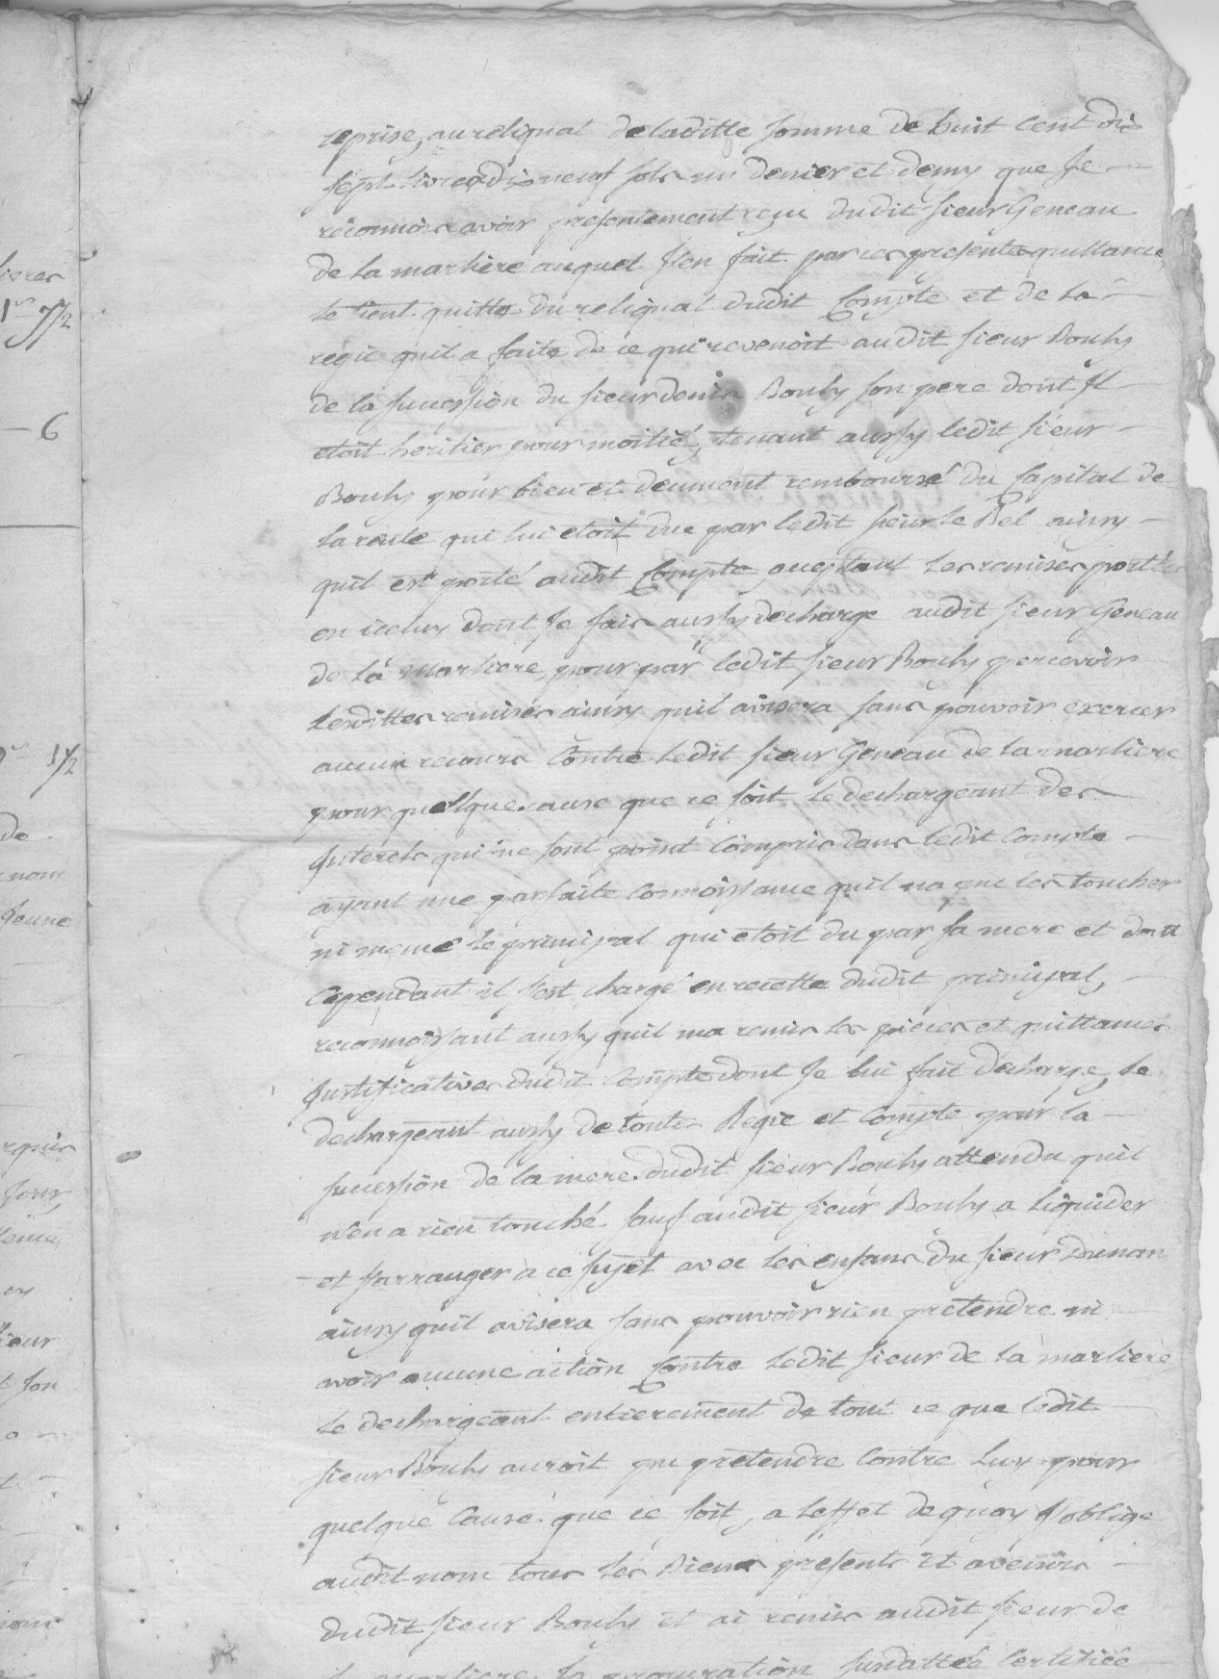 reprise, au reliquat de laditte somme de huit cent dix
sept livres dix neuf sols un denier et demy que Je
reconnois avoir presentement reçu dudit sieur Geneau
de la marliere auquel J'en fait par ces presentes quittance
le tient quitte du reliquat dudit Compte et de la
regie qu'il a faite de ce qui revenoit audit sieur Bouly
de la succession du sieur denis Bouly son pere dont Il
etoit heritier pour moitié, tenant aussy ledit sieur
Bouly pour bien et deument remboursé du Capital de
la rente qui lui etoit due par ledit sieur le Bel ainsy
quil est porté audit Compte acceptant les remises portées
en iceluy dont Je fais aussy decharge audit sieur Geneau
de la Marliere, pour par ledit sieur Bouly percevoir
lesdittes remises ainsy quil avisera sans pouvoir exercer
aucun recours Contre ledit sieur Geneau de la marliere
pour quelque cause que ce soit, le dechargeant des
Interets qui ne sont point Compris dans ledit Compte
ayant une parfaite Connoissance quil na pu les toucher
ni meme le principal qui etoit du par sa mere et dont
Cependant il s'est chargé en recette dudit principal,
reconnoissant aussy quil ma remis les pieces et quittances
Justificatives dudit Compte dont Je lui fait decharge, le
dechargeant aussy de toute Regie et Compte pour la
succession de la mere dudit sieur Bouly attendu quil
n'en a rien touché sauf audit sieur Bouly a liquider
et sarranger a ce sujet avec les enfans du sieur Dunan
ainsy quil avisera sans pouvoir rien pretendre ni
avoir aucune action Contre ledit sieur de la marliere
le dechargeant entierement de tout ce que ledit
sieur Bouly auroit pu pretendre Contre luy pour
quelque Cause que ce soit, a leffet de quoy J'oblige
audit nom tous les Biens presents et avenirs
dudit sieur Bouly et ai remis audit sieur de
la marliere la procuration susdattée Certifiée